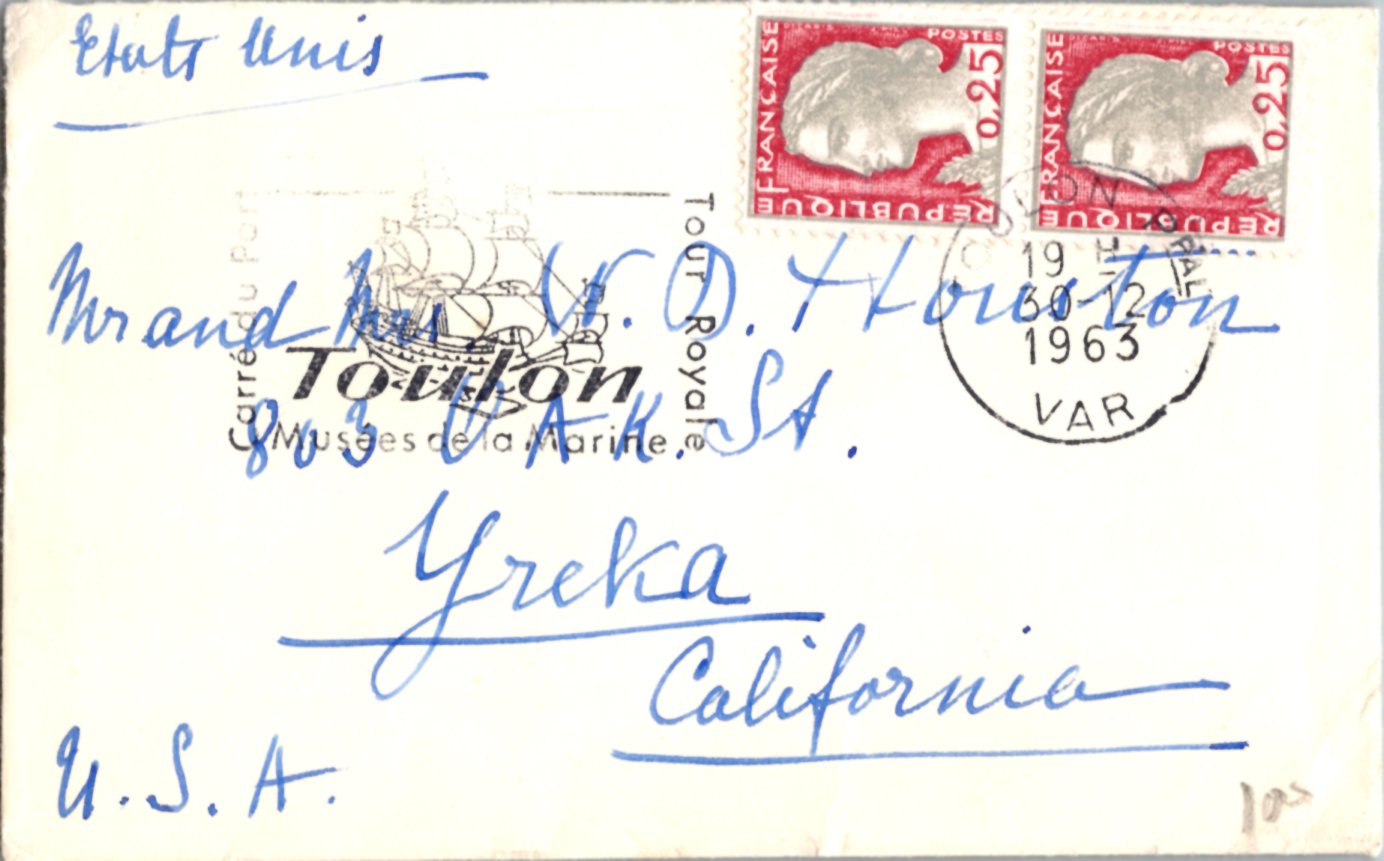 Etats Unis
POSTES
0,25
REPUBLIQUE
FRANÇAISE
POSTES
0,25
REPUBLIQUE
FRANÇAISE
Carré du Port
Tour Royale
Toulon
Musées de la Marine
TOULON PPAL
19 H
30-12
1963
VAR
Mr and Mrs. N. D. Houston
803 OAK. St.
Yreka
California
U. S. A.